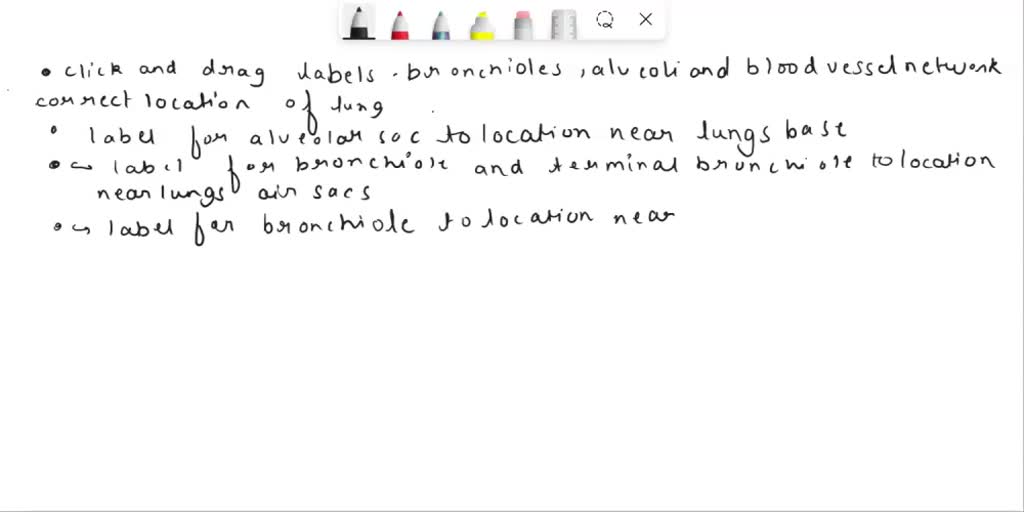 • click and drag labels . bronchioles , alveoli and blood vessel network
correct location of lung
• label for alveolar sac to location near lungs base
• ↪ label for bronchiole and terminal bronchiole to location
near lungs air sacs
• ↪ label for bronchiole to location near